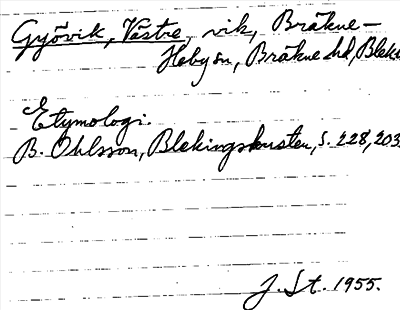 Gyövik, Västre, vik, Bräkne-
Hoby sn, Bräkne hd, Blek
Etymologi.
B. Ohlsson, Blekingskusten, s. 228, 203
J. St. 1955.